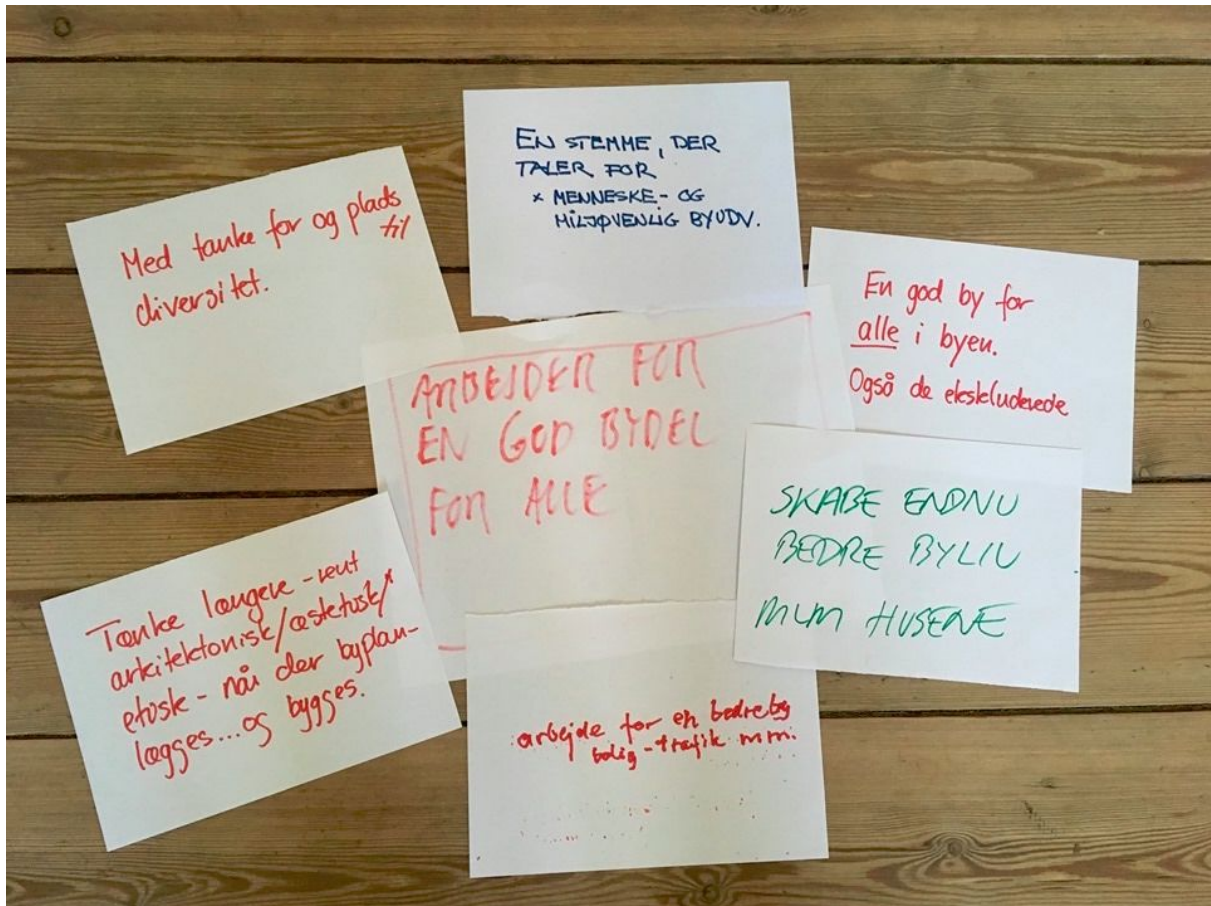 EN STEMME, DER
TALER FOR
* MENNESKE- OG
MILJØVENLIG BYUDV.
Med tanke for og plads
til
diversitet.
En god by for
alle i byen.
Også de ekskluderede
ARBEJDER FOR
EN GOD BYDEL
FOR ALLE
SKABE ENDNU
BEDRE BYLIV
MLM HUSENE
Tænke længere - rent
arkitektonisk/æstetisk/*
etisk - når der byplan-
lægges...og bygges.
arbejde for en bedre by
bolig - trafik m.m.